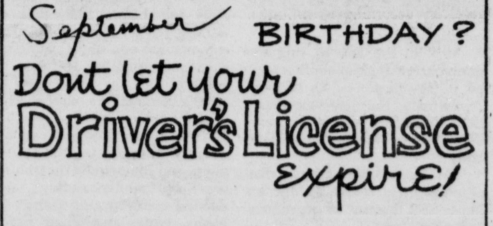 September BIRTHDAY?
Dont let your
Driver's License
Expire!